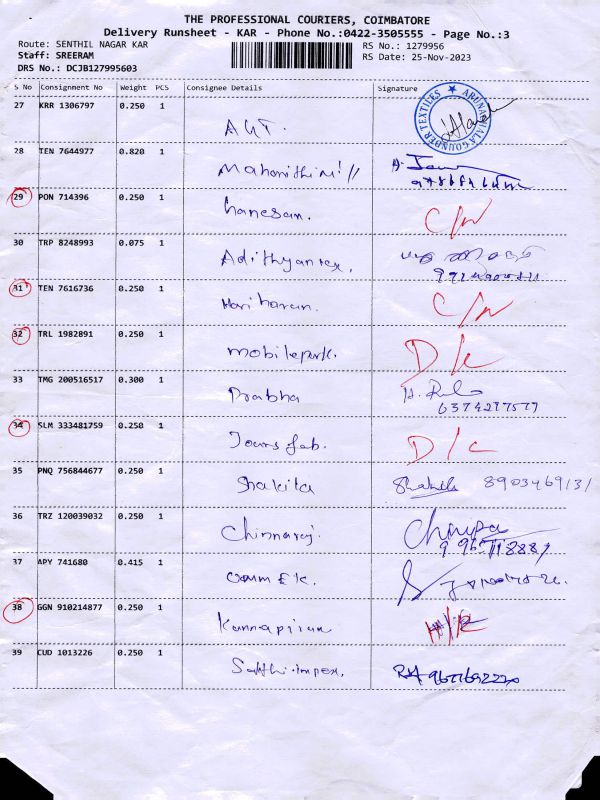 THE PROFESSIONAL COURIERS, COIMBATORE
Delivery Runsheet - KAR - Phone No.:0422-3505555 - Page No.:3
Route: SENTHIL NAGAR KAR
RS No.: 1279956
Staff: SREERAM
RS Date: 25-Nov-2023
DRS No.: DCJB127995603
S No Consignment No Weight PCS Consignee Details Signature
ARUNACHALA GOUNDER TEXTILES
27 KRR 1306797 0.250 1 AGT.
28 TEN 7644977 0.820 1
29 PON 714396 0.250 1 Ganesan. C/N
30 TRP 8248993 0.075 1 Adithyantex,
31 TEN 7616736 0.250 1 Hariharan. C/N
32 TRL 1982891 0.250 1 mobilepark. D/L
33 TMG 200516517 0.300 1 Prabha
6374297577
34 SLM 333481759 0.250 1 D/C
35 PNQ 756844677 0.250 1 Shakila Shakila 8903469131
36 TRZ 120039032 0.250 1 Chinnaraj.
37 APY 741680 0.415 1
38 GGN 910214877 0.250 1 Kannapiran
39 CUD 1013226 0.250 1 Sakthi.impex.